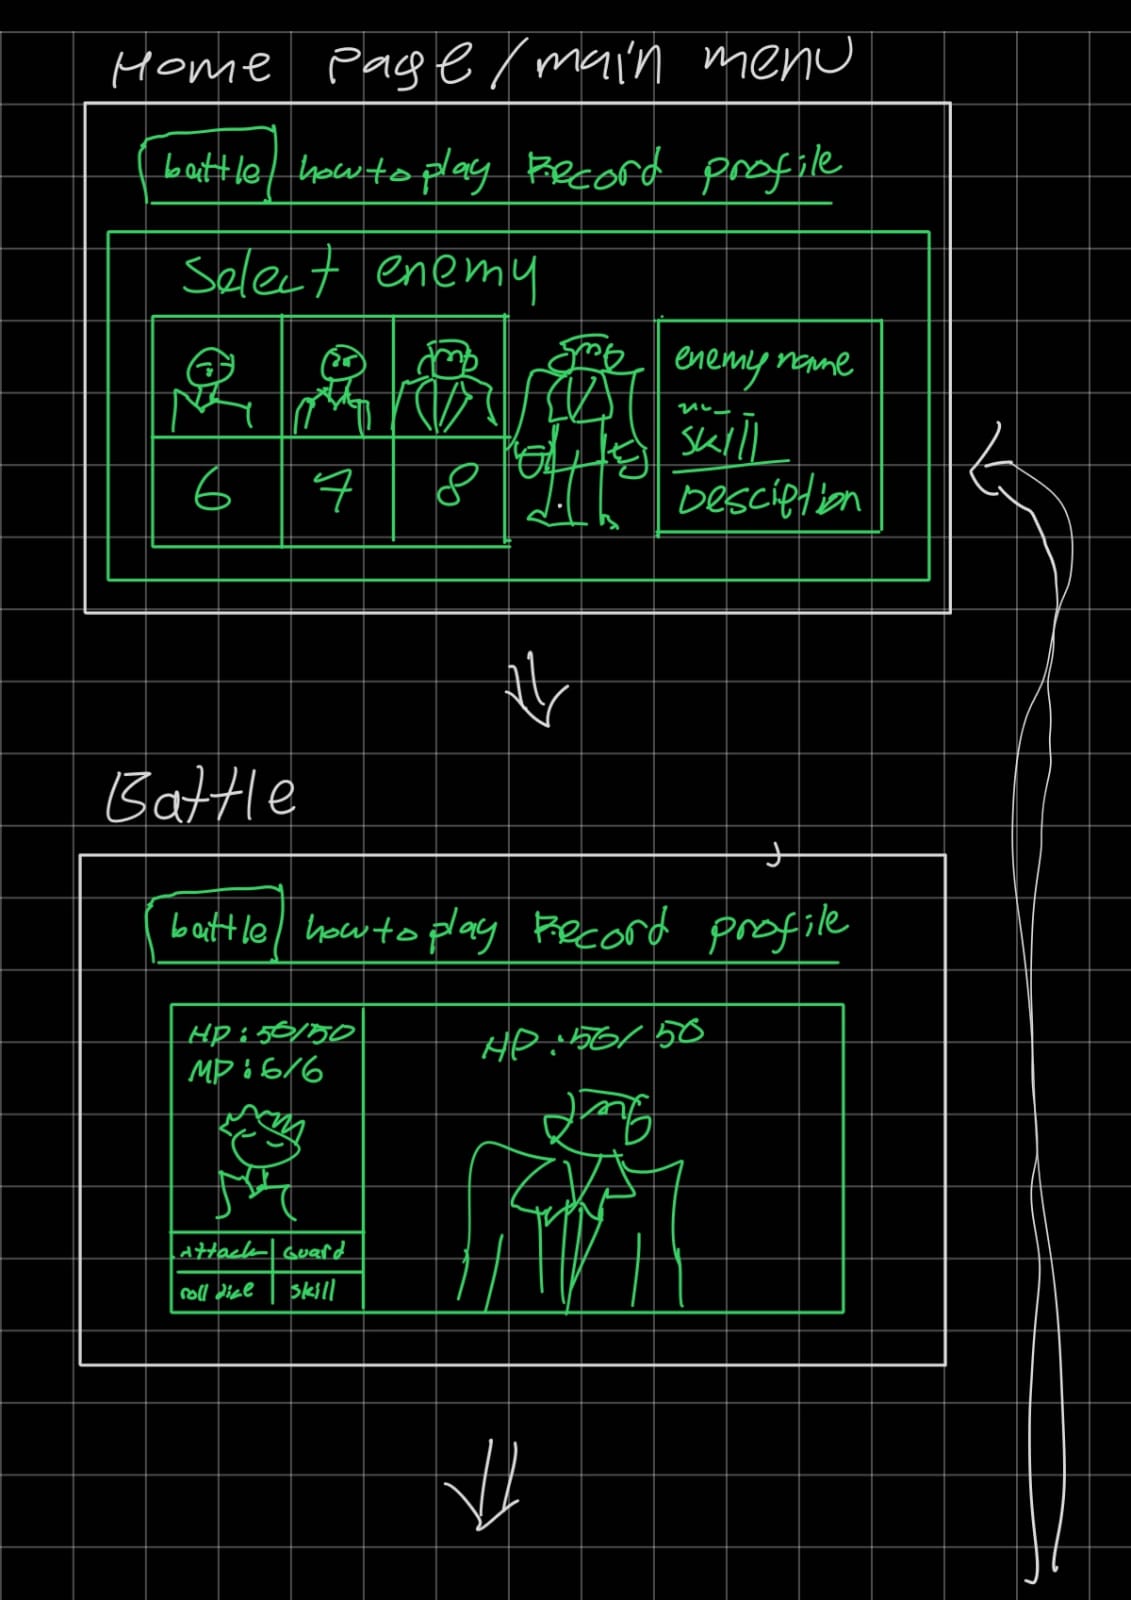 Home Page/main menu
battle how to play Record profile
Select enemy
enemy name
skill
Desciption
6 7 8
Battle
battle how to play Record profile
HP:50/50
MP:6/6
HP:50/50
Attack Guard
roll dice skill